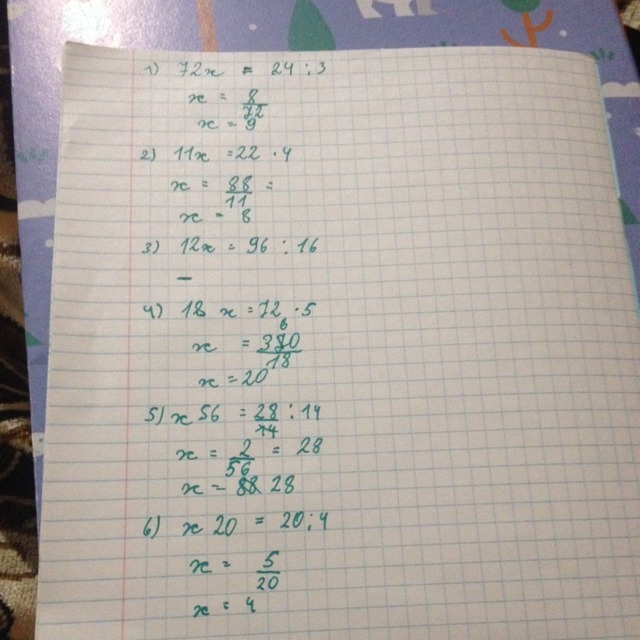 1) 72x = 24 : 3
x = 8/72
x = 9
2) 11x = 22 · 4
x = 88/11 =
x = 8
3) 12x = 96 : 16
—
4) 18 x = 72 · 5
x = 380/18
x = 20
5) x 56 = 28/14 : 14
x = 2/56 = 28
x = 28
6) x 20 = 20 : 4
x = 5/20
x = 4